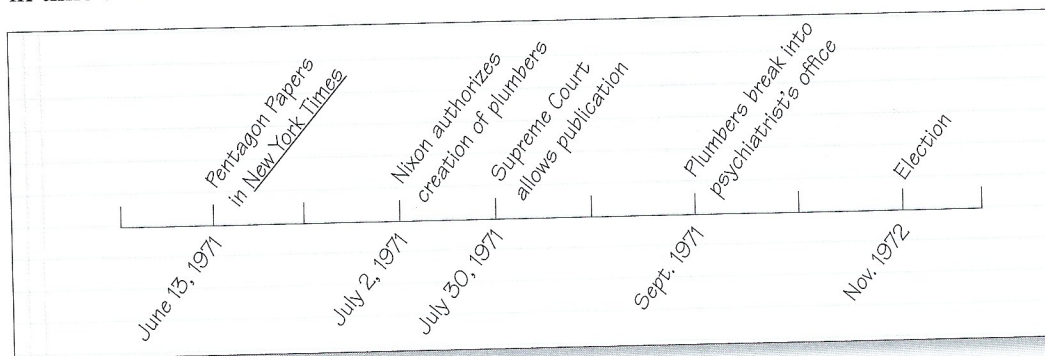 Pentagon Papers
in New York Times
Nixon authorizes
creation of plumbers
Supreme Court
allows publication
Plumbers break into
psychiatrist's office
Election
June 13, 1971
July 2, 1971
July 30, 1971
Sept. 1971
Nov. 1972